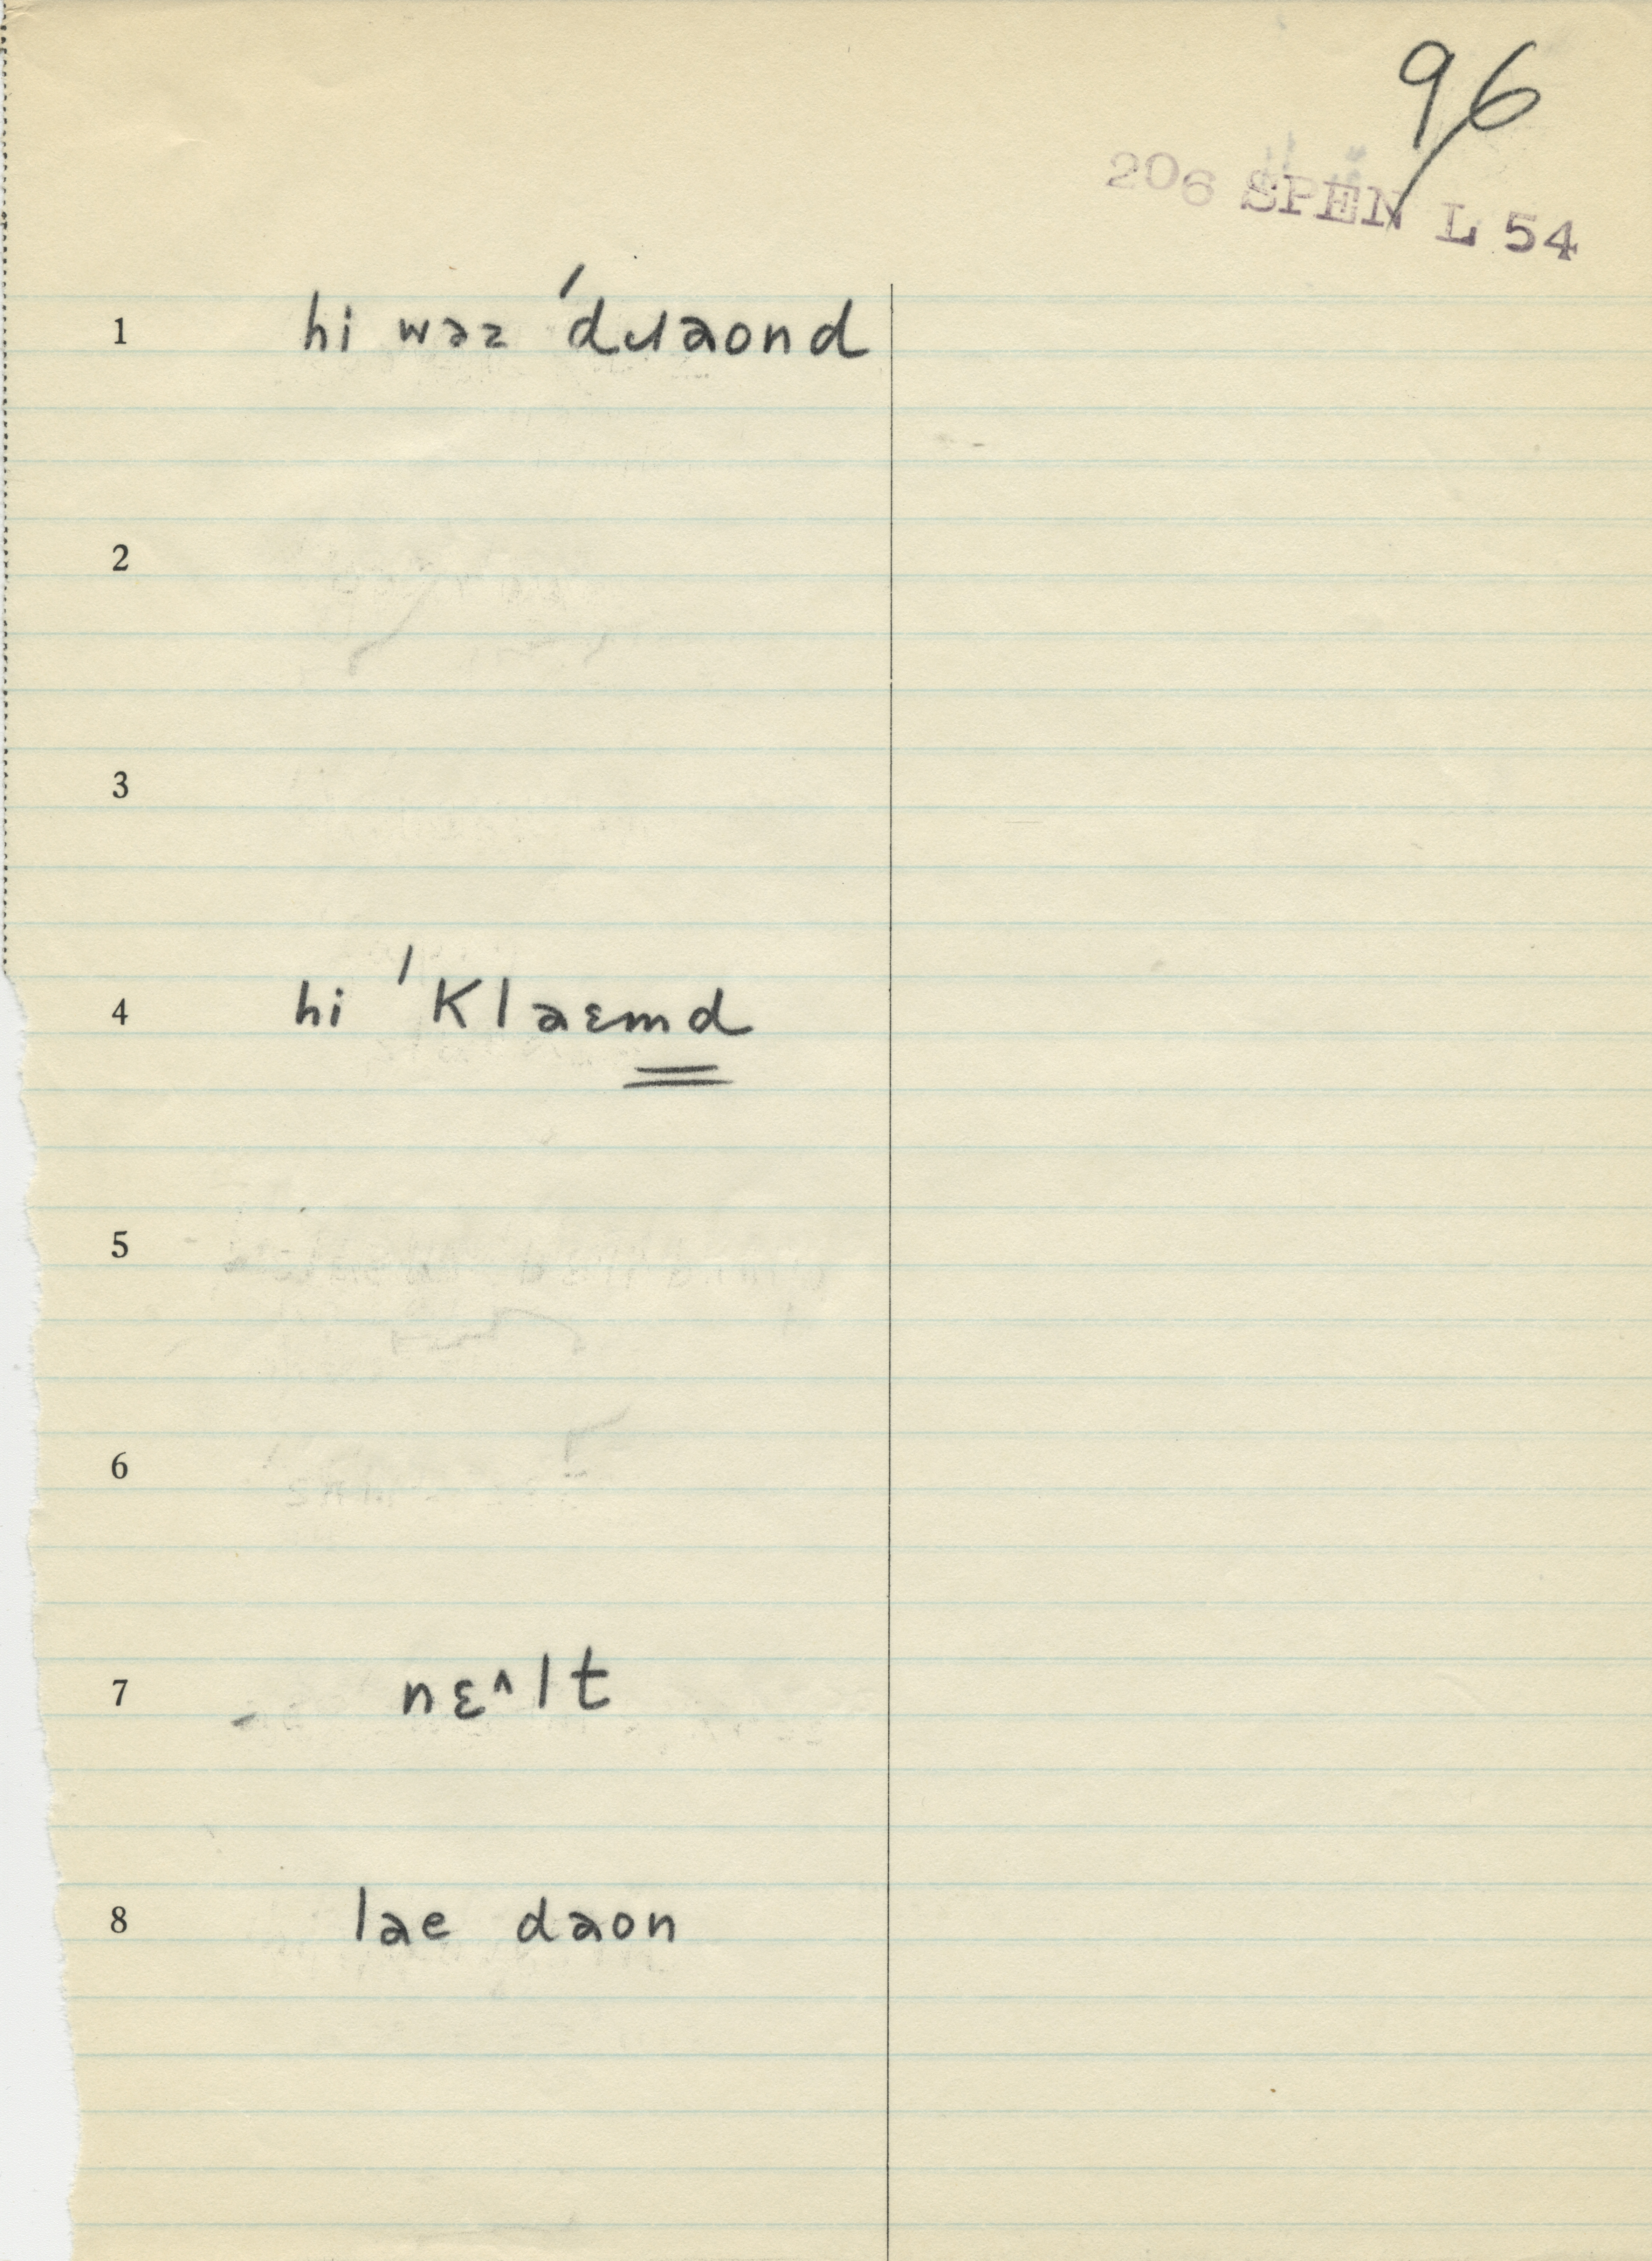 96
206 SPEN L 54
1 hi wəz ˈdɹaond
2
3
4 hi ˈklaɛmd
5
6
7 nɛ^lt
8 lae daon